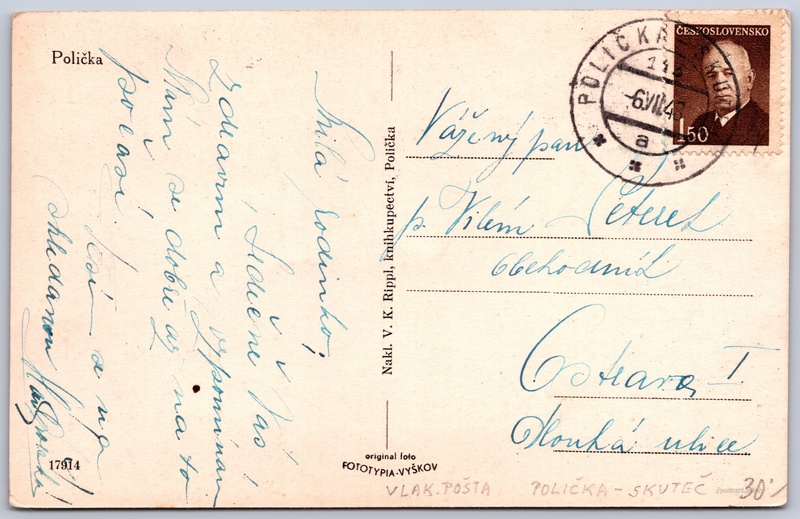 Polička
Milá rodinko,
Zdravím a vzpomínám
srdečně Vás!
Mám se dobře až na to
počasí. Těší a na
shledanou
17914
Nakl. V. K. Rippl, knihkupectví, Polička
original foto
FOTOTYPIA-VYŠKOV
POLIČKA
a
ČESKOSLOVENSKO
1.50
Vážený pan
p. Vilém
obchodník
Ostrava I.
Dlouhá ulice
VLAK. POŠTA POLIČKA - SKUTEČ 30